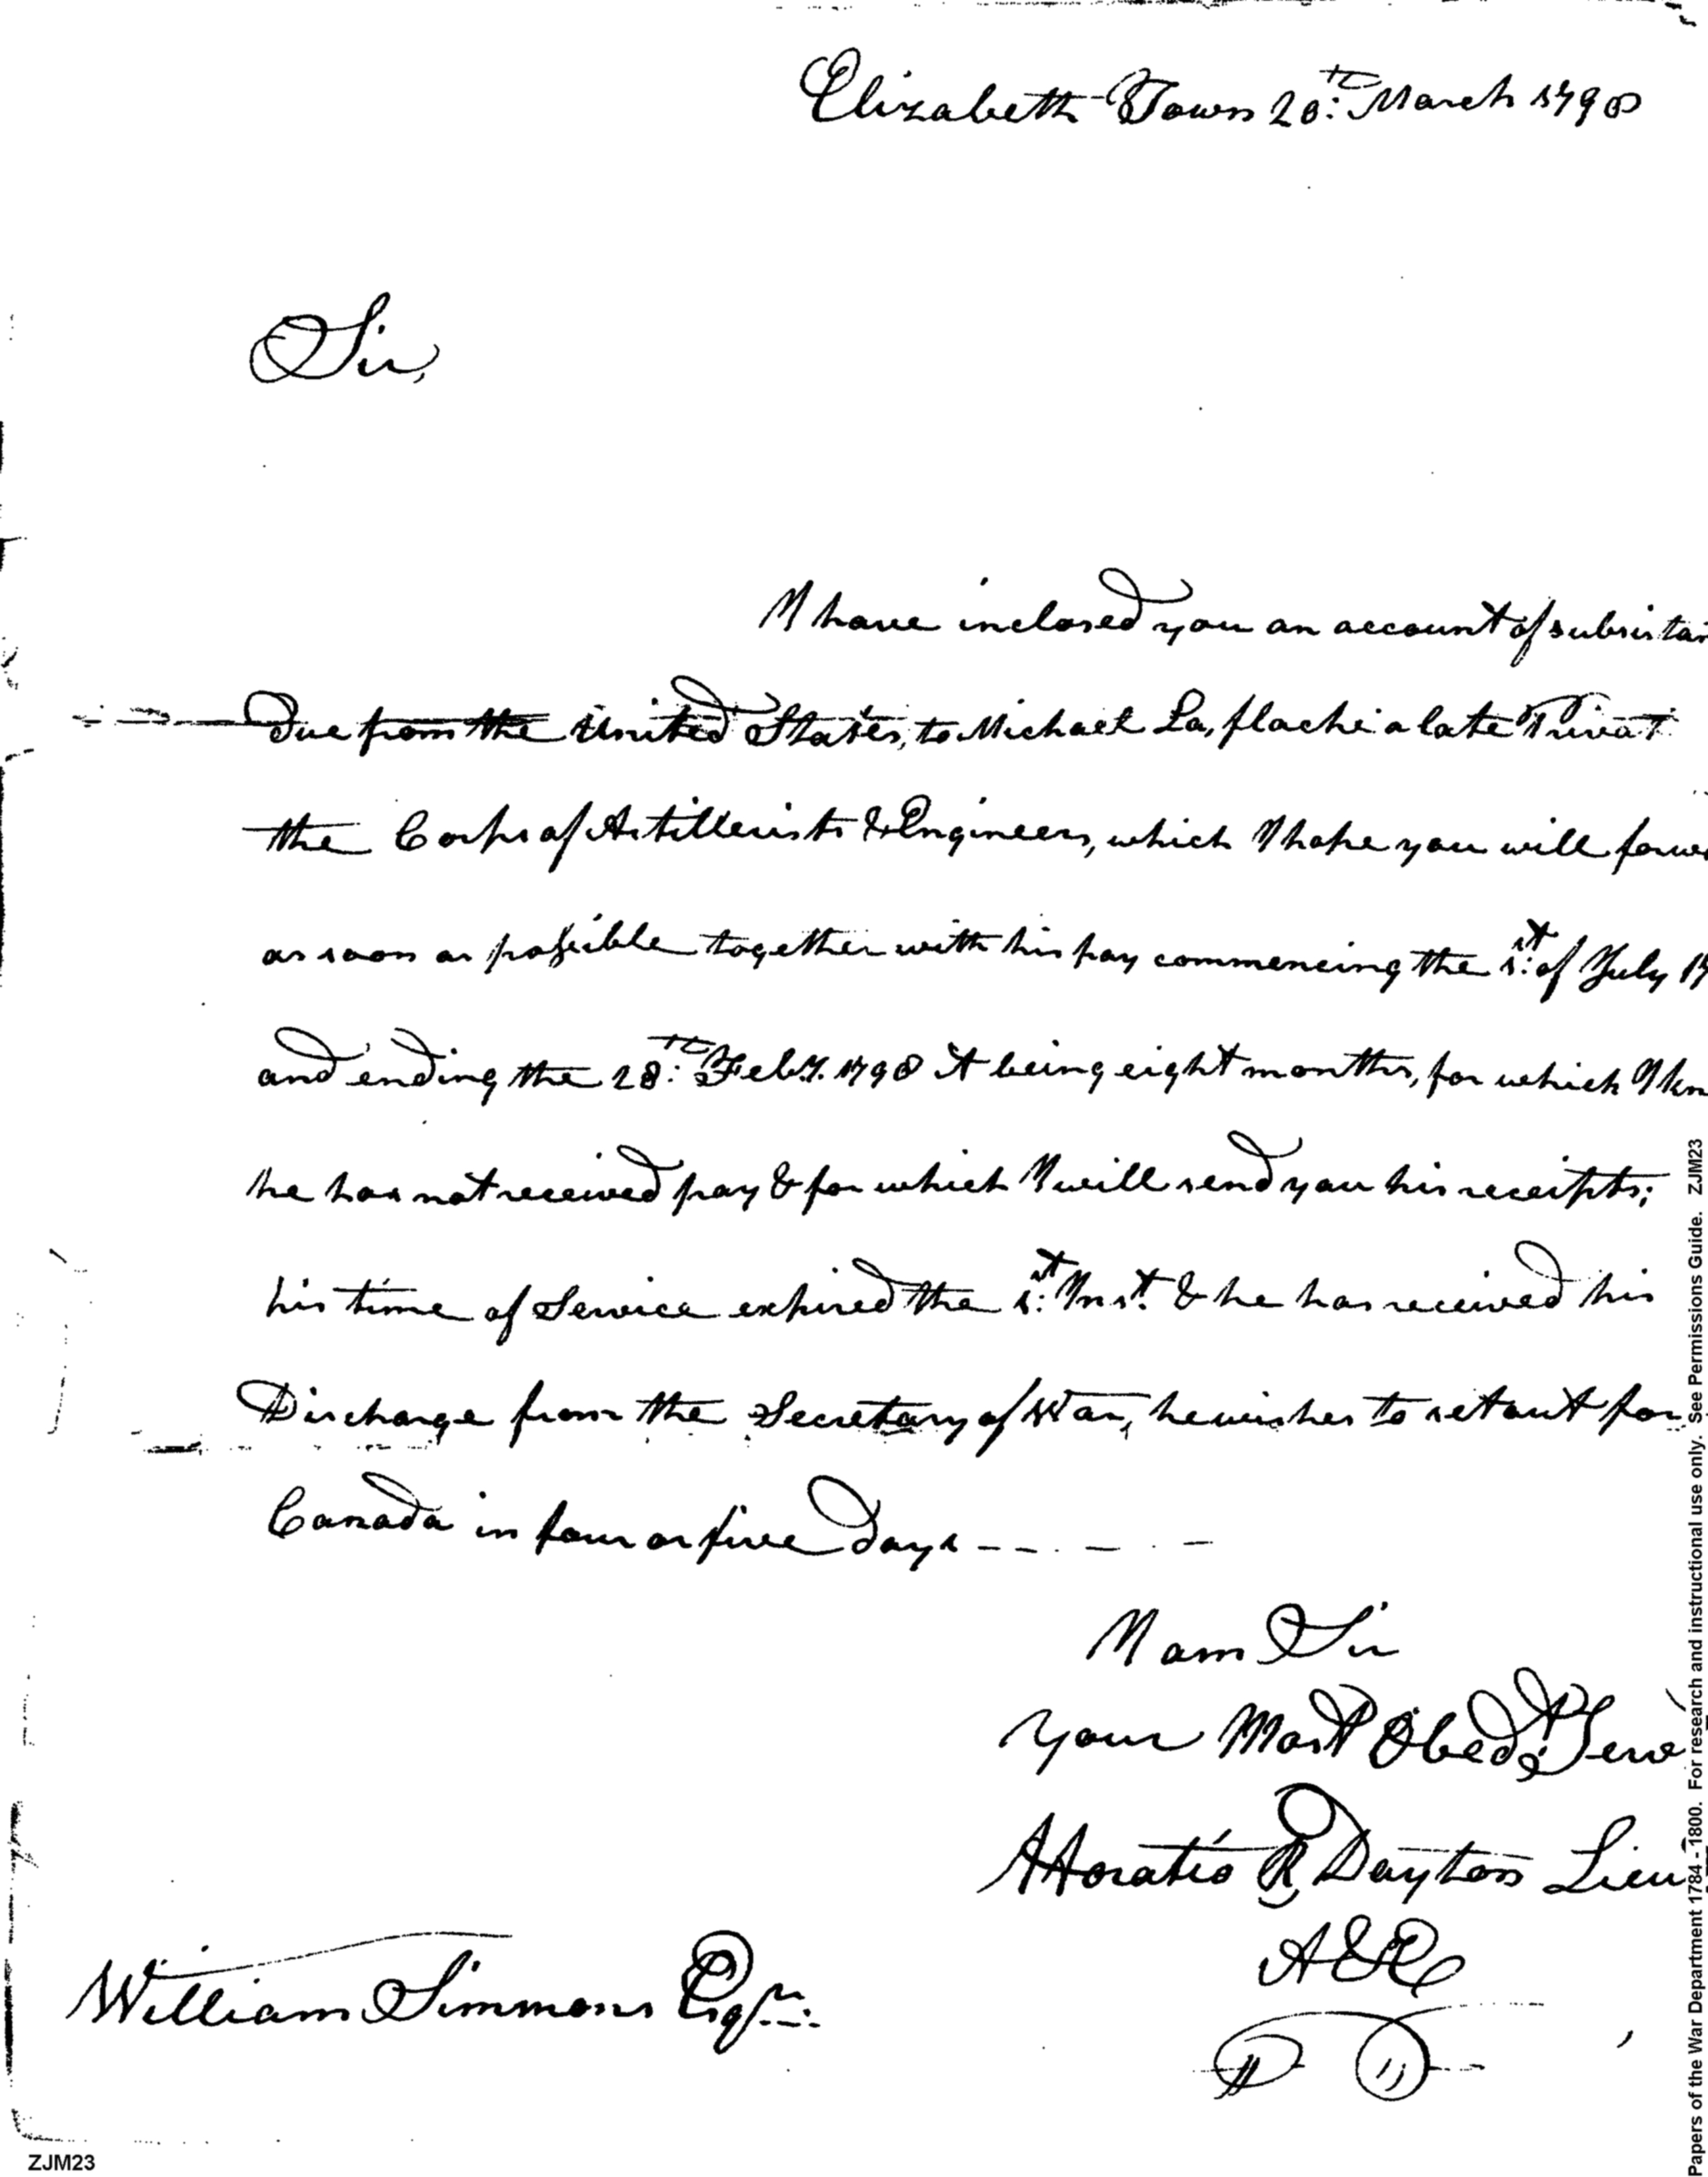 Elizabeth-Town 20:th March 1798
Sir,
I have inclosed you an account of subsistan
Due from the United States, to Michael La,flache a late Privat
the Corps of Artillerists & Engineers, which I hope you will forwa
as soon as possible together with his pay commencing the 1:st of July 17
and ending the 28:th Feby. 1798 it being eight months, for which I kn
he has not received pay & for which I will send you his receipts;
his time of Service expired the 1:st Inst. & he has received his
Discharge from the Secretary of War, he wishes to set out for
Canada in four or five Days - - - - -
I am Sir
Your Most Obedt: Serv
Horatio R Dayton Lieu
A&E
William Simmons Esqr.
ZJM23
Papers of the War Department 1784 - 1800. For research and instructional use only. See Permissions Guide. ZJM23